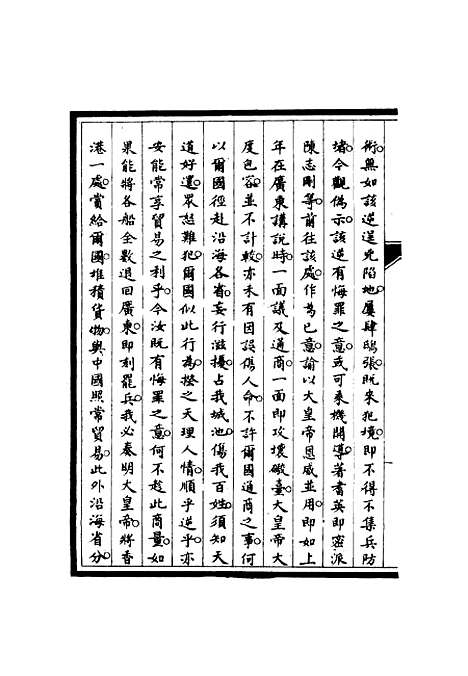 術無如該逆送兇陷地屢肆鴟張既來犯境即不得不集兵防
堵今觀偽示該逆有悔罪之意或可乘機開導著耆英即密派
陳志剛等前往該處作為已意諭以大皇帝恩威並用即如上
年在廣東講說時一面議及通商一面即攻壞礮臺大皇帝大
度包容並不計較亦未有因誤傷人命不許爾國通商之事何
以爾國徑赴沿海各省妄行滋擾占我城池傷我百姓須知天
道好還眾怒難犯爾國似此行為揆之天理人情順乎逆乎亦
安能常享貿易之利乎今汝既有悔罪之意何不趁此商量如
果能將各船全數退回廣東即刻罷兵我必奏明大皇帝將香
港一處賞給爾國堆積貨物與中國照常貿易此外沿海省分